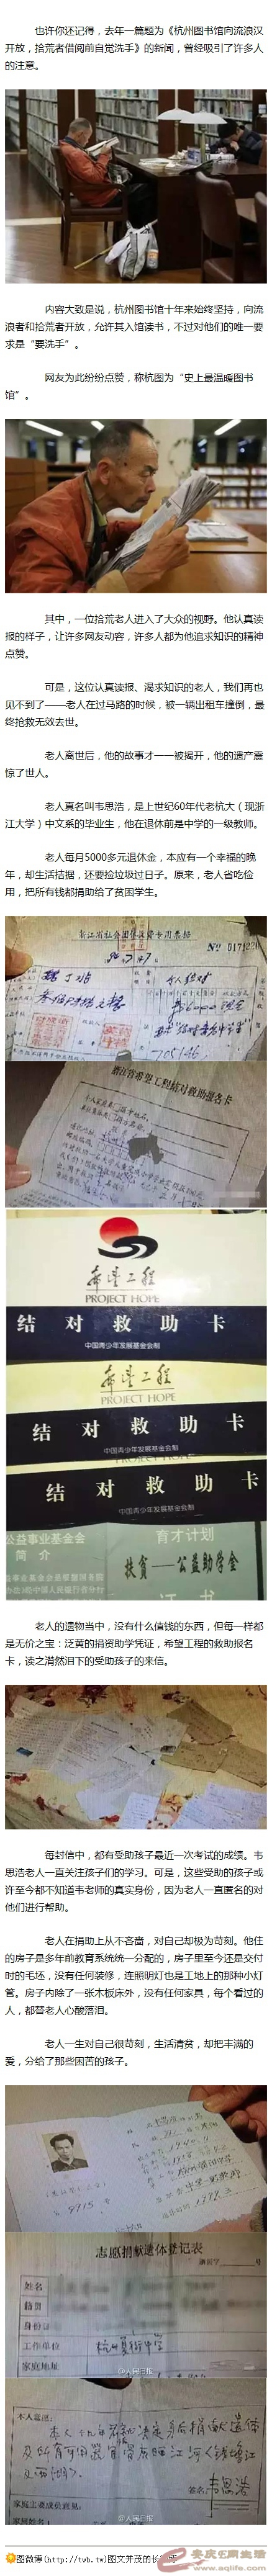 也许你还记得，去年一篇题为《杭州图书馆向流浪汉
开放，拾荒者借阅前自觉洗手》的新闻，曾经吸引了许多人
的注意。
内容大致是说，杭州图书馆十年来始终坚持，向流
浪者和拾荒者开放，允许其入馆读书，不过对他们的唯一要
求是“要洗手”。
网友为此纷纷点赞，称杭图为“史上最温暖图书
馆”。
其中，一位拾荒老人进入了大众的视野。他认真读
报的样子，让许多网友动容，许多人都为他追求知识的精神
点赞。
可是，这位认真读报、渴求知识的老人，我们再也
见不到了——老人在过马路的时候，被一辆出租车撞倒，最
终抢救无效去世。
老人离世后，他的故事才一一被揭开，他的遗产震
惊了世人。
老人真名叫韦思浩，是上世纪60年代老杭大（现浙
江大学）中文系的毕业生，他在退休前是中学的一级教师。
老人每月5000多元退休金，本应有一个幸福的晚
年，却生活拮据，还要捡垃圾过日子。原来，老人省吃俭
用，把所有钱都捐助给了贫困学生。
浙江省社会团体收费专用票据
浙江省希望工程结对救助报名卡
希望工程
PROJECT HOPE
结对救助卡
中国青少年发展基金会制
希望工程
PROJECT HOPE
结对救助卡
中国青少年发展基金会制
结对救助卡
中国青少年发展基金会制
公益事业基金会
简介
育才计划
扶贫—公益助学金
证书
老人的遗物当中，没有什么值钱的东西，但每一样都
是无价之宝：泛黄的捐资助学凭证，希望工程的救助报名
卡，读之潸然泪下的受助孩子的来信。
每封信中，都有受助孩子最近一次考试的成绩。韦
思浩老人一直关注孩子们的学习。可是，这些受助的孩子或
许至今都不知道韦老师的真实身份，因为老人一直匿名的对
他们进行帮助。
老人在捐助上从不吝啬，对自己却极为苛刻。他住
的房子是多年前教育系统统一分配的，房子里至今还是交付
时的毛坯，没有任何装修，连照明灯也是工地上的那种小灯
管。房子内除了一张木板床外，没有任何家具，每个看过的
人，都替老人心酸落泪。
老人一生对自己很苛刻，生活清贫，却把丰满的
爱，分给了那些困苦的孩子。
志愿捐献遗体登记表
姓名
籍贯
身份证
工作单位
杭州夏衍中学
家庭地址
@人民日报
本人意愿：
签名：韦思浩
家庭主要成员意见：
@人民日报
图微博(http://twb.tw)图文并茂的长
安庆E网生活
www.aqlife.com